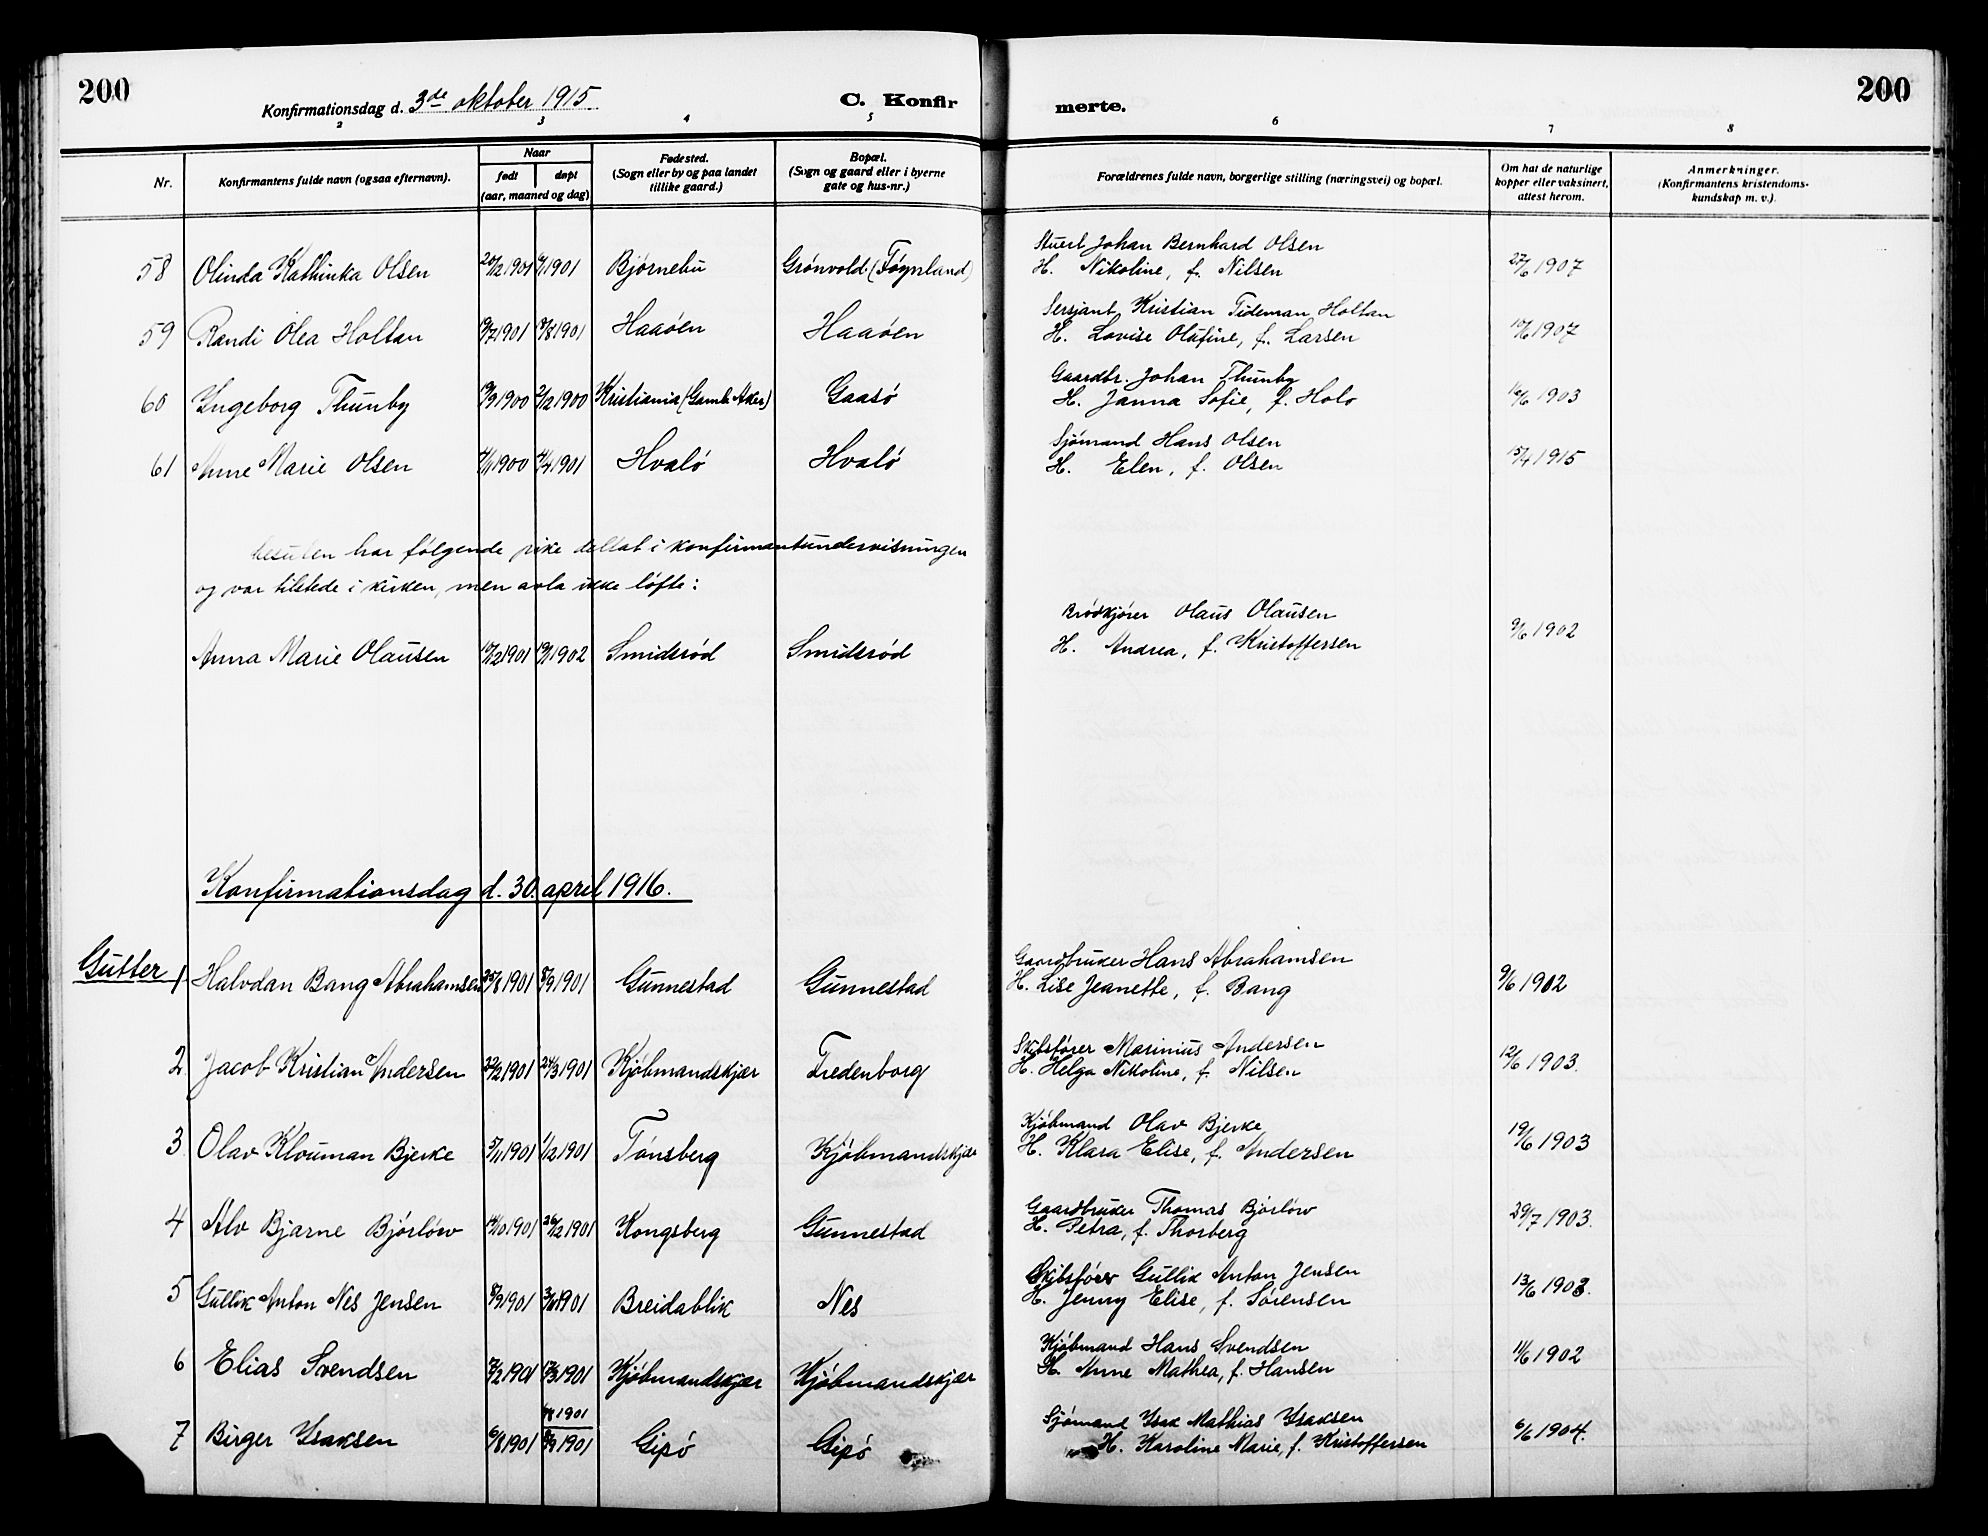 200
Konfirmationsdag d. 3de oktober 1915.
C. Konfir
merte.
200
2 3 4 5 6 7 8
Nr.
Konfirmantens fulde navn (ogsaa efternavn).
Naar
født
døpt
(aar, maaned og dag)
Fødested.
(Sogn eller by og paa landet
tillike gaard.)
Bopæl.
(Sogn og gaard eller i byerne
gate og hus-nr.)
Forældrenes fulde navn, borgerlige stilling (næringsvei) og bopæl.
Om hat de naturlige
kopper eller vaksinert,
attest herom.
Anmerkninger.
(Konfirmantens kristendoms-
kundskap m. v.).
58 Olinda Kathinka Olsen 1901 1901 Bjørnebu Grønvold (Føynland)
Stuert Johan Bernhard Olsen
H. Nikoline, f. Nilsen 27/6 1907
59 Randi Olea Holtan 1901 /8 1901 Haaøen Haaøen
Sersjant Kristian Tideman Holtan
H. Lovise Olufine, f. Larsen 1907
60 Yngeborg Thunby 1900 2/12 1900 Kristiania (Gamle Aker) Gaasø
Gaardbr. Johan Thunby
H. Janna Sofie, f. Holo 1903
61 Anne Marie Olsen 1900 1901 Hvalø Hvalø
Sjømand Hans Olsen
H. Elen, f. Olsen 15/4 1915
Desuten har følgende pike deltat i konfirmantundervisningen
og var tilstede i kirken, men avla ikke løfte:
Anna Marie Olausen 1901 19/1 1902 Smidsrød Smidsrød
Brødkjører Olaus Olausen
H. Andrea, f. Kristoffersen 9/6 1902
Konfirmationsdag d. 30. april 1916.
Gutter
1 Halvdan Bang Abrahamsen 25/8 1901 8/9 1901 Gunnestad Gunnestad
Gaardbruker Hans Abrahamsen
H. Lise Jeanette, f. Bang 9/6 1902
2 Jacob Kristian Andersen 22/2 1901 24/3 1901 Kjøbmandskjær Fredenborg
Skibsfører Marinius Andersen
H. Helga Nikoline, f. Nilsen 12/6 1903.
3 Olav Klouman Bjerke 5/11 1901 1/12 1901 Tønsberg Kjøbmandskjær
Kjøbmand Olav Bjerke
H. Klara Elise, f. Andersen 19/6 1903
4 Alv Bjarne Bjørløw 14/10 1901 26/12 1901 Kongsberg Gunnestad
Gaardbruker Thomas Bjørløw
H. Petra, f. Thorberg 29/7 1903.
5 Gullik Anton Nes Jensen 8/9 1901 1901 Breidablik Nes
Skibsfører Gullik Anton Jensen
H. Jenny Elise, f. Sørensen 13/6 1903.
6 Elias Svendsen /2 1901 17/3 1901 Kjøbmandskjær Kjøbmandskjær
Kjøbmand Hans Svendsen
H. Anne Mathea, f. Hansen 11/6 1902
7 Birger Ysaksen 6/8 1901 /8 1901
8/9 1901 Gipø Gipø
Sjømand Ysak Mathias Ysaksen
H. Karoline Marie, f. Kristoffersen 6/6 1904.